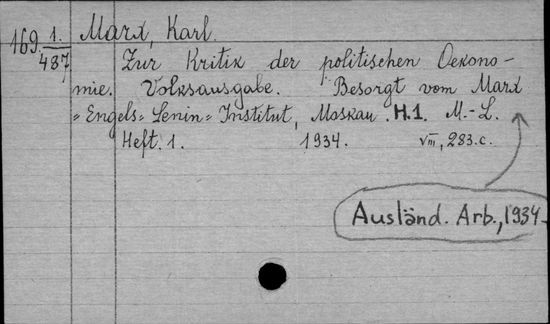 169. 1. Marx, Karl.
487 Zur Kritik der politischen Oekono-
mie. Volksausgabe. Besorgt vom Marx
=Engels=Lenin=Institut, Moskau. H.1. M.-L.
Heft. 1. 1934. VIII, 283.c.
Ausländ. Arb., 1934